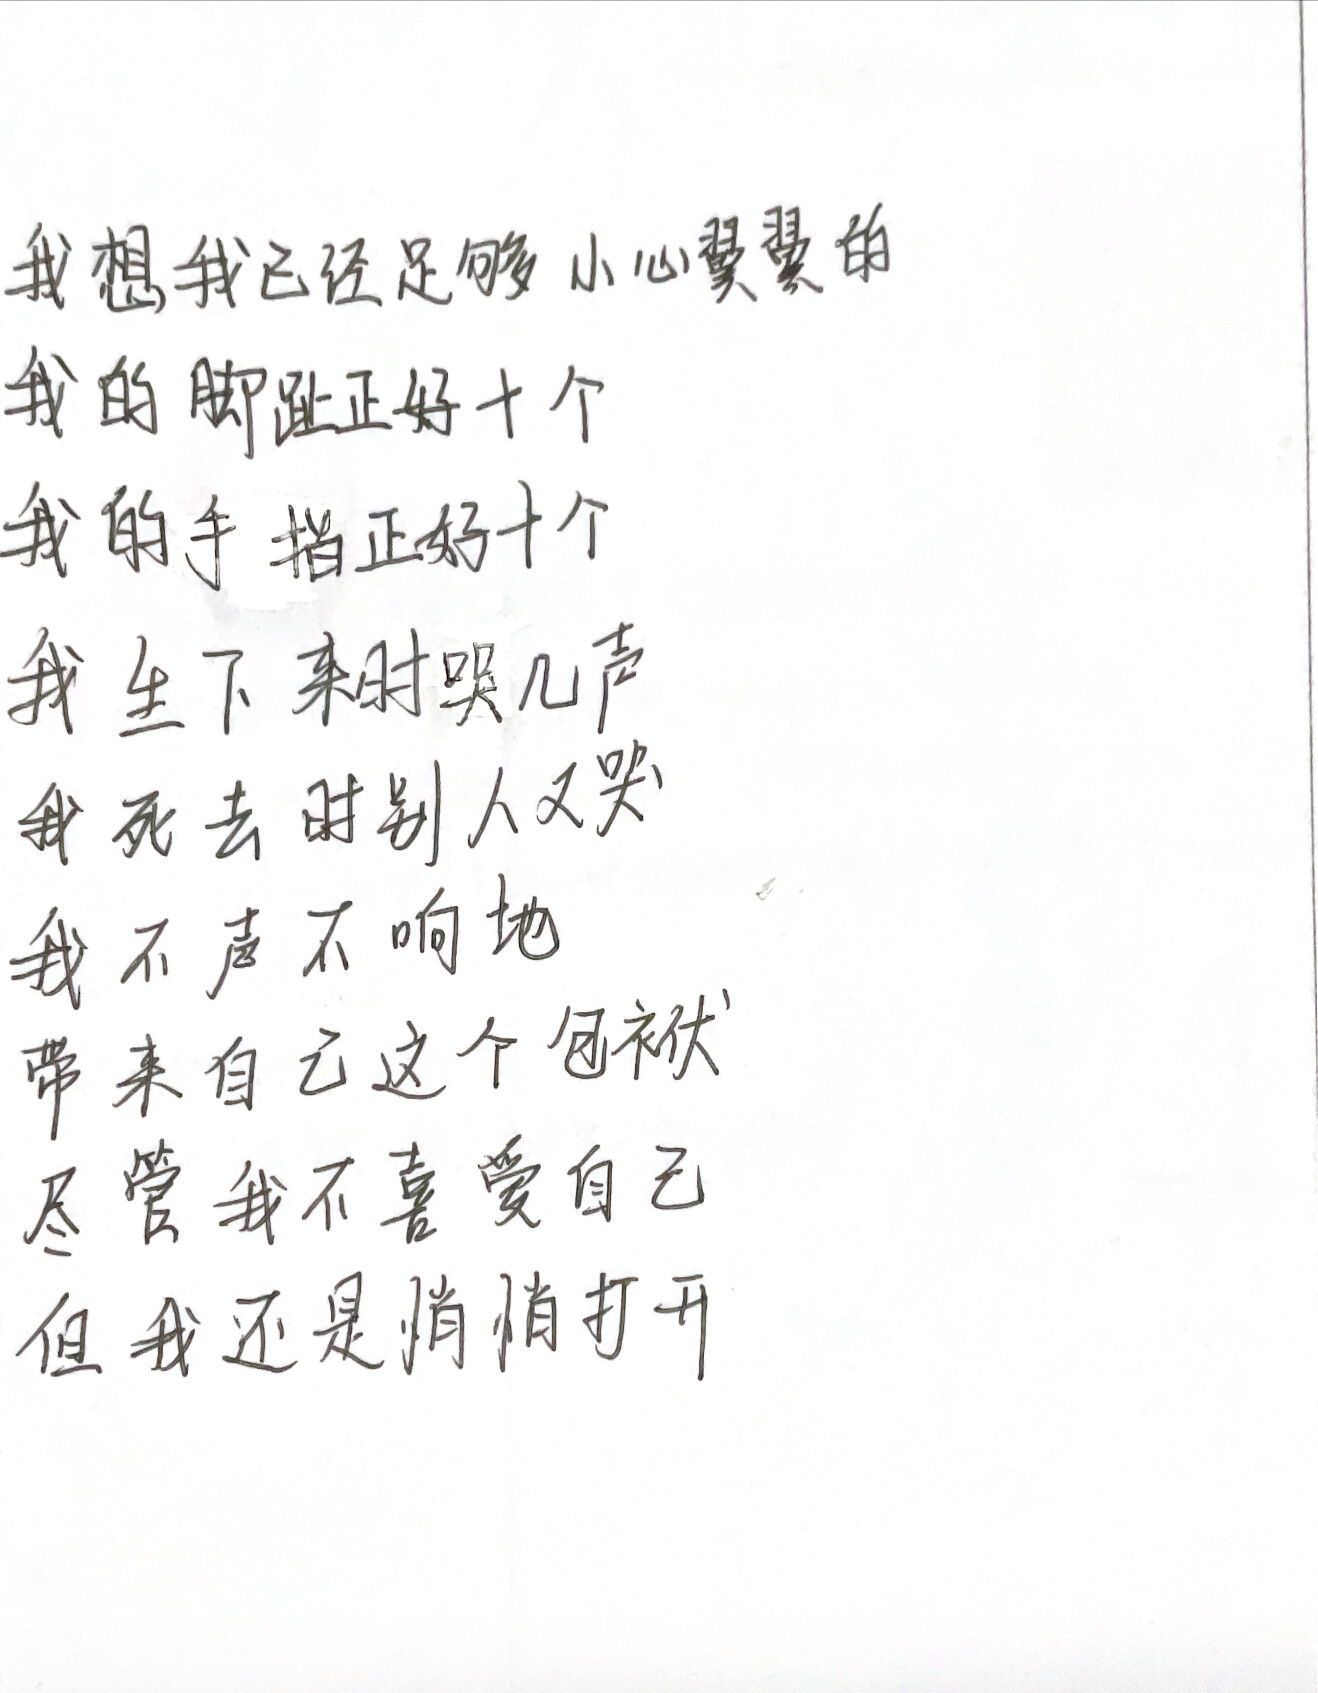 我想我已经足够小心翼翼的
我的脚趾正好十个
我的手指正好十个
我生下来时哭几声
我死去时别人又哭
我不声不响地
带来自己这个包袱
尽管我不喜爱自己
但我还是悄悄打开